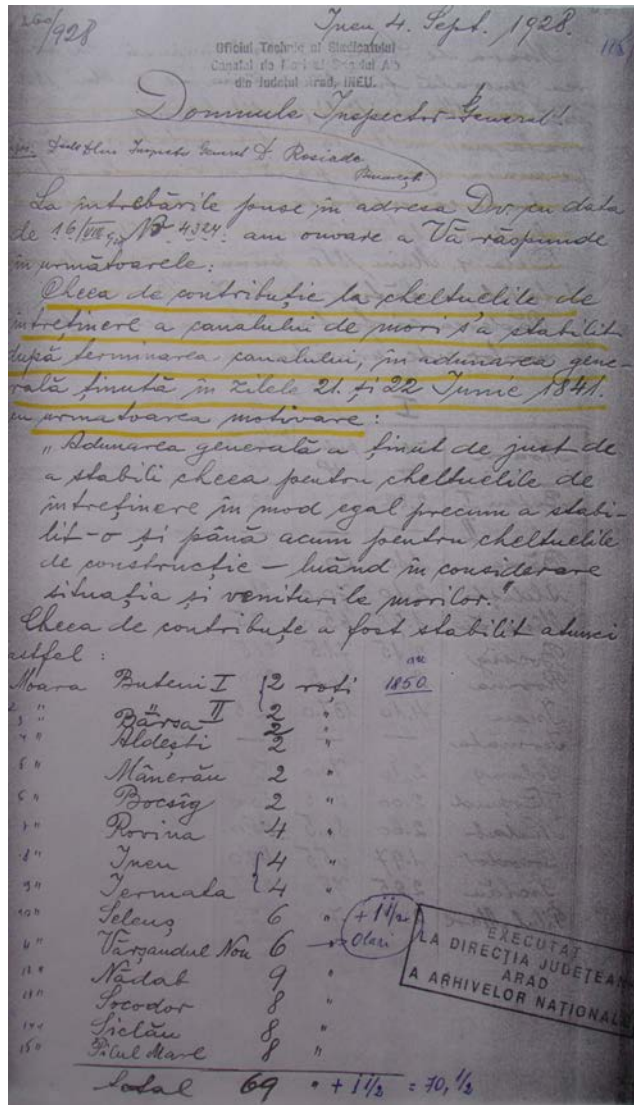 260/928
Ineu, 4. Sept. 1928.
118
Oficiul Technic al Sindicatului
Canalul de Mori al Crișului Alb
din Judeţul Arad, INEU.
Domnule Inspector-General!
Inspector General D. Rosiade
București
La întrebările puse în adresa Dv. cu data
de 16/VIII 928 No 4324 am onoare a Vă răspunde
în următoarele:
Cheea de contribuţie la cheltuelile de
întreţinere a canalului de mori s'a stabilit
după terminarea canalului, în adunarea gene-
rală ţinută în zilele 21. și 22 Iunie 1841.
cu urmatoarea motivare:
„Adunarea generală a ţinut de just de
a stabili cheea pentru cheltuelile de
întreţinere în mod egal precum a stabi-
lit-o și până acum pentru cheltuelile
de construcţie – luând în considerare
situaţia și veniturile morilor."
Cheea de contribuţe a fost stabilit atunci
astfel:
Moara Buteni I 2 roţi 1850
2 " " II 2 "
3 " Bârsa 2
4 " Aldești 2 "
5 " Mânerău 2 "
6 " Bocsig 2 "
7 " Rovina 4 "
8 " Ineu 4 "
9 " Iermata 4 "
10 " Seleuș 6 " + 1 1/2
11 " Vârșandul Nou 6 Olari
12 " Nădab 9 "
13 " Socodor 8 "
14 " Siclău 8 "
15 " Pilul Mare 8 "
total 69 " + 1 1/2 = 70, 1/2
EXECUTAT
LA DIRECŢIA JUDEŢEAN
ARAD
A ARHIVELOR NAŢIONALE